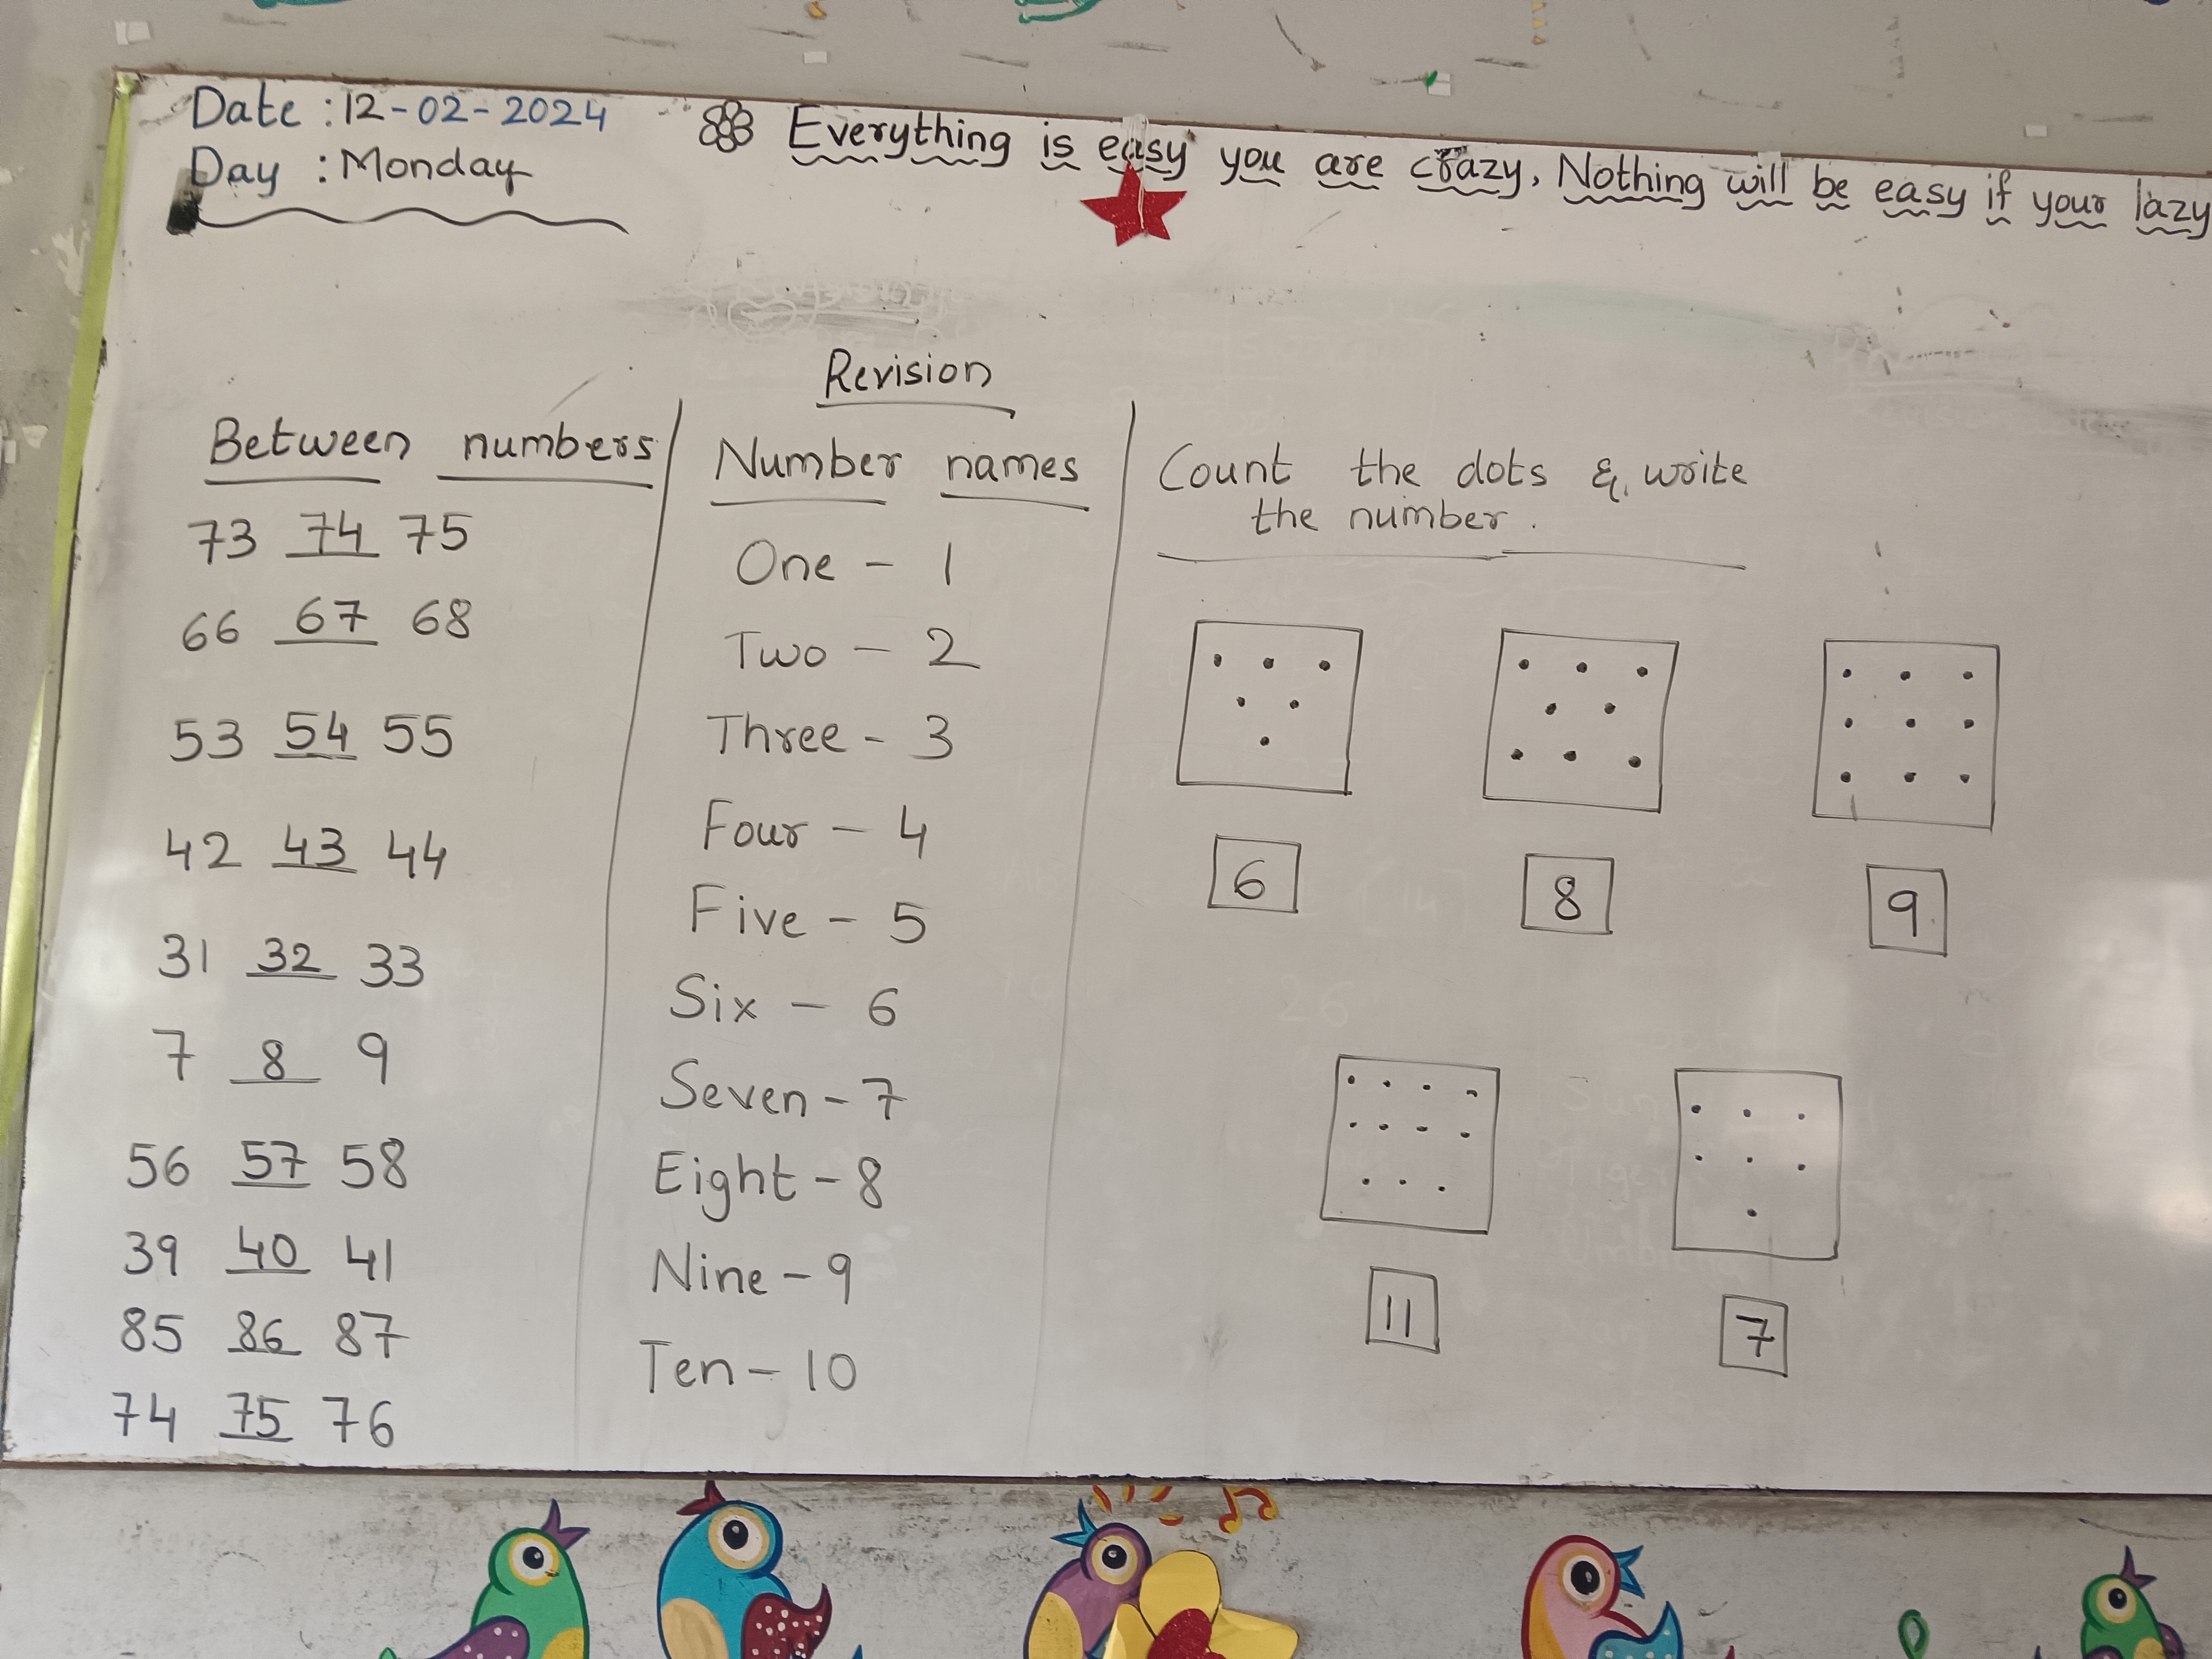 Date : 12-02-2024
Day : Monday
Everything is easy you are crazy, Nothing will be easy if your lazy
Revision
Between numbers
73 74 75
66 67 68
53 54 55
42 43 44
31 32 33
7 8 9
56 57 58
39 40 41
85 86 87
74 75 76
Number names
One - 1
Two - 2
Three - 3
Four - 4
Five - 5
Six - 6
Seven - 7
Eight - 8
Nine - 9
Ten - 10
Count the dots & write
the number.
6 8 9
11 7